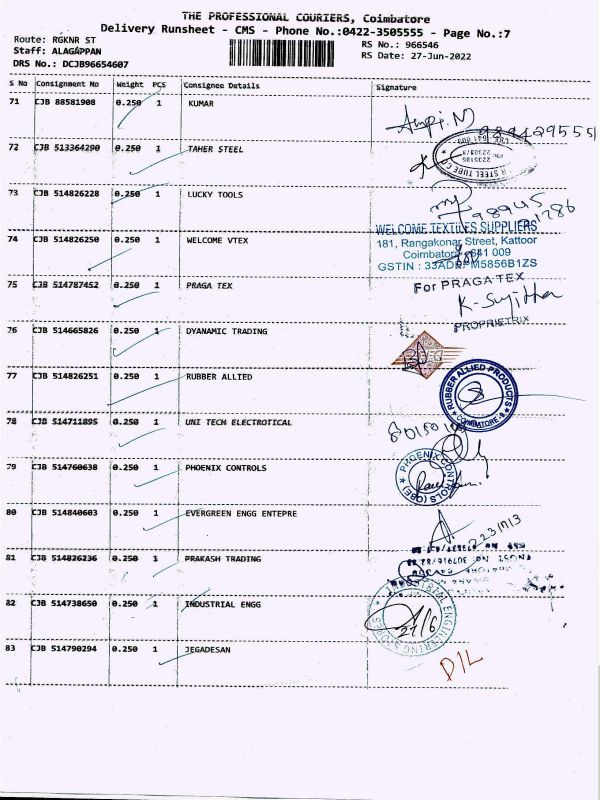 THE PROFESSIONAL COURIERS, Coimbatore
Delivery Runsheet - CMS - Phone No.:0422-3505555 - Page No.:7
Route: RGKNR ST
Staff: ALAGAPPAN
DRS No.: DCJB96654607
RS No.: 966546
RS Date: 27-Jun-2022
S No Consignment No Weight PCS Consignee Details Signature
71 CJB 88581908 0.250 1 KUMAR
72 CJB 513364290 0.250 1 TAHER STEEL
73 CJB 514826228 0.250 1 LUCKY TOOLS
74 CJB 514826250 0.250 1 WELCOME VTEX
WELCOME TEXTILES SUPPLIERS
181, Rangakonar Street, Kattoor
Coimbatore 641 009
75 CJB 514787452 0.250 1 PRAGA TEX
For PRAGA TEX
K-Sujitha
PROPRIETRIX
76 CJB 514665826 0.250 1 DYANAMIC TRADING
77 CJB 514826251 0.250 1 RUBBER ALLIED
RUBBER ALLIED PRODUCTS
COIMBATORE-9
78 CJB 514711895 0.250 1 UNI TECH ELECTROTICAL
79 CJB 514760638 0.250 1 PHOENIX CONTROLS
PHOENIX CONTROLS (CBE)
80 CJB 514840603 0.250 1 EVERGREEN ENGG ENTEPRE
81 CJB 514826236 0.250 1 PRAKASH TRADING
82 CJB 514738650 0.250 1 INDUSTRIAL ENGG
27/6
83 CJB 514790294 0.250 1 JEGADESAN
D/L